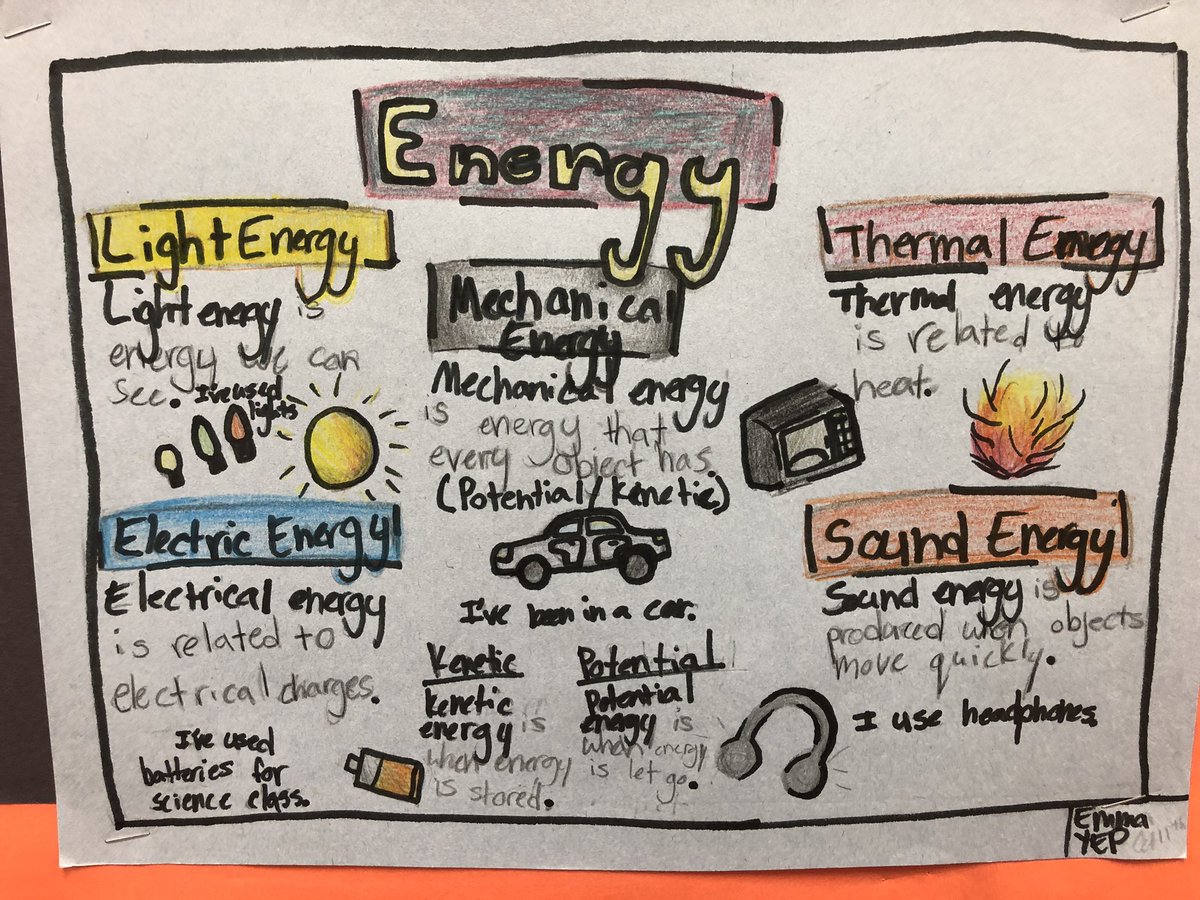 Energy
Light Energy
Light energy is
energy we can
see. I've used
lights
Electric Energy
Electrical energy
is related to
electrical charges.
I've used
batteries for
science class.
Mechanical
Energy
Mechanical energy
is energy that
every object has.
(Potential/Kenetic)
I've been in a car.
Kenetic
Kenetic
energy is
when energy
is stored.
Potential
Potential
energy is
when energy
is let go.
Thermal Energy
Thermal energy
is related to
heat.
Sound Energy
Sound energy is
produced when objects
move quickly.
I use headphones.
Emma
YEP